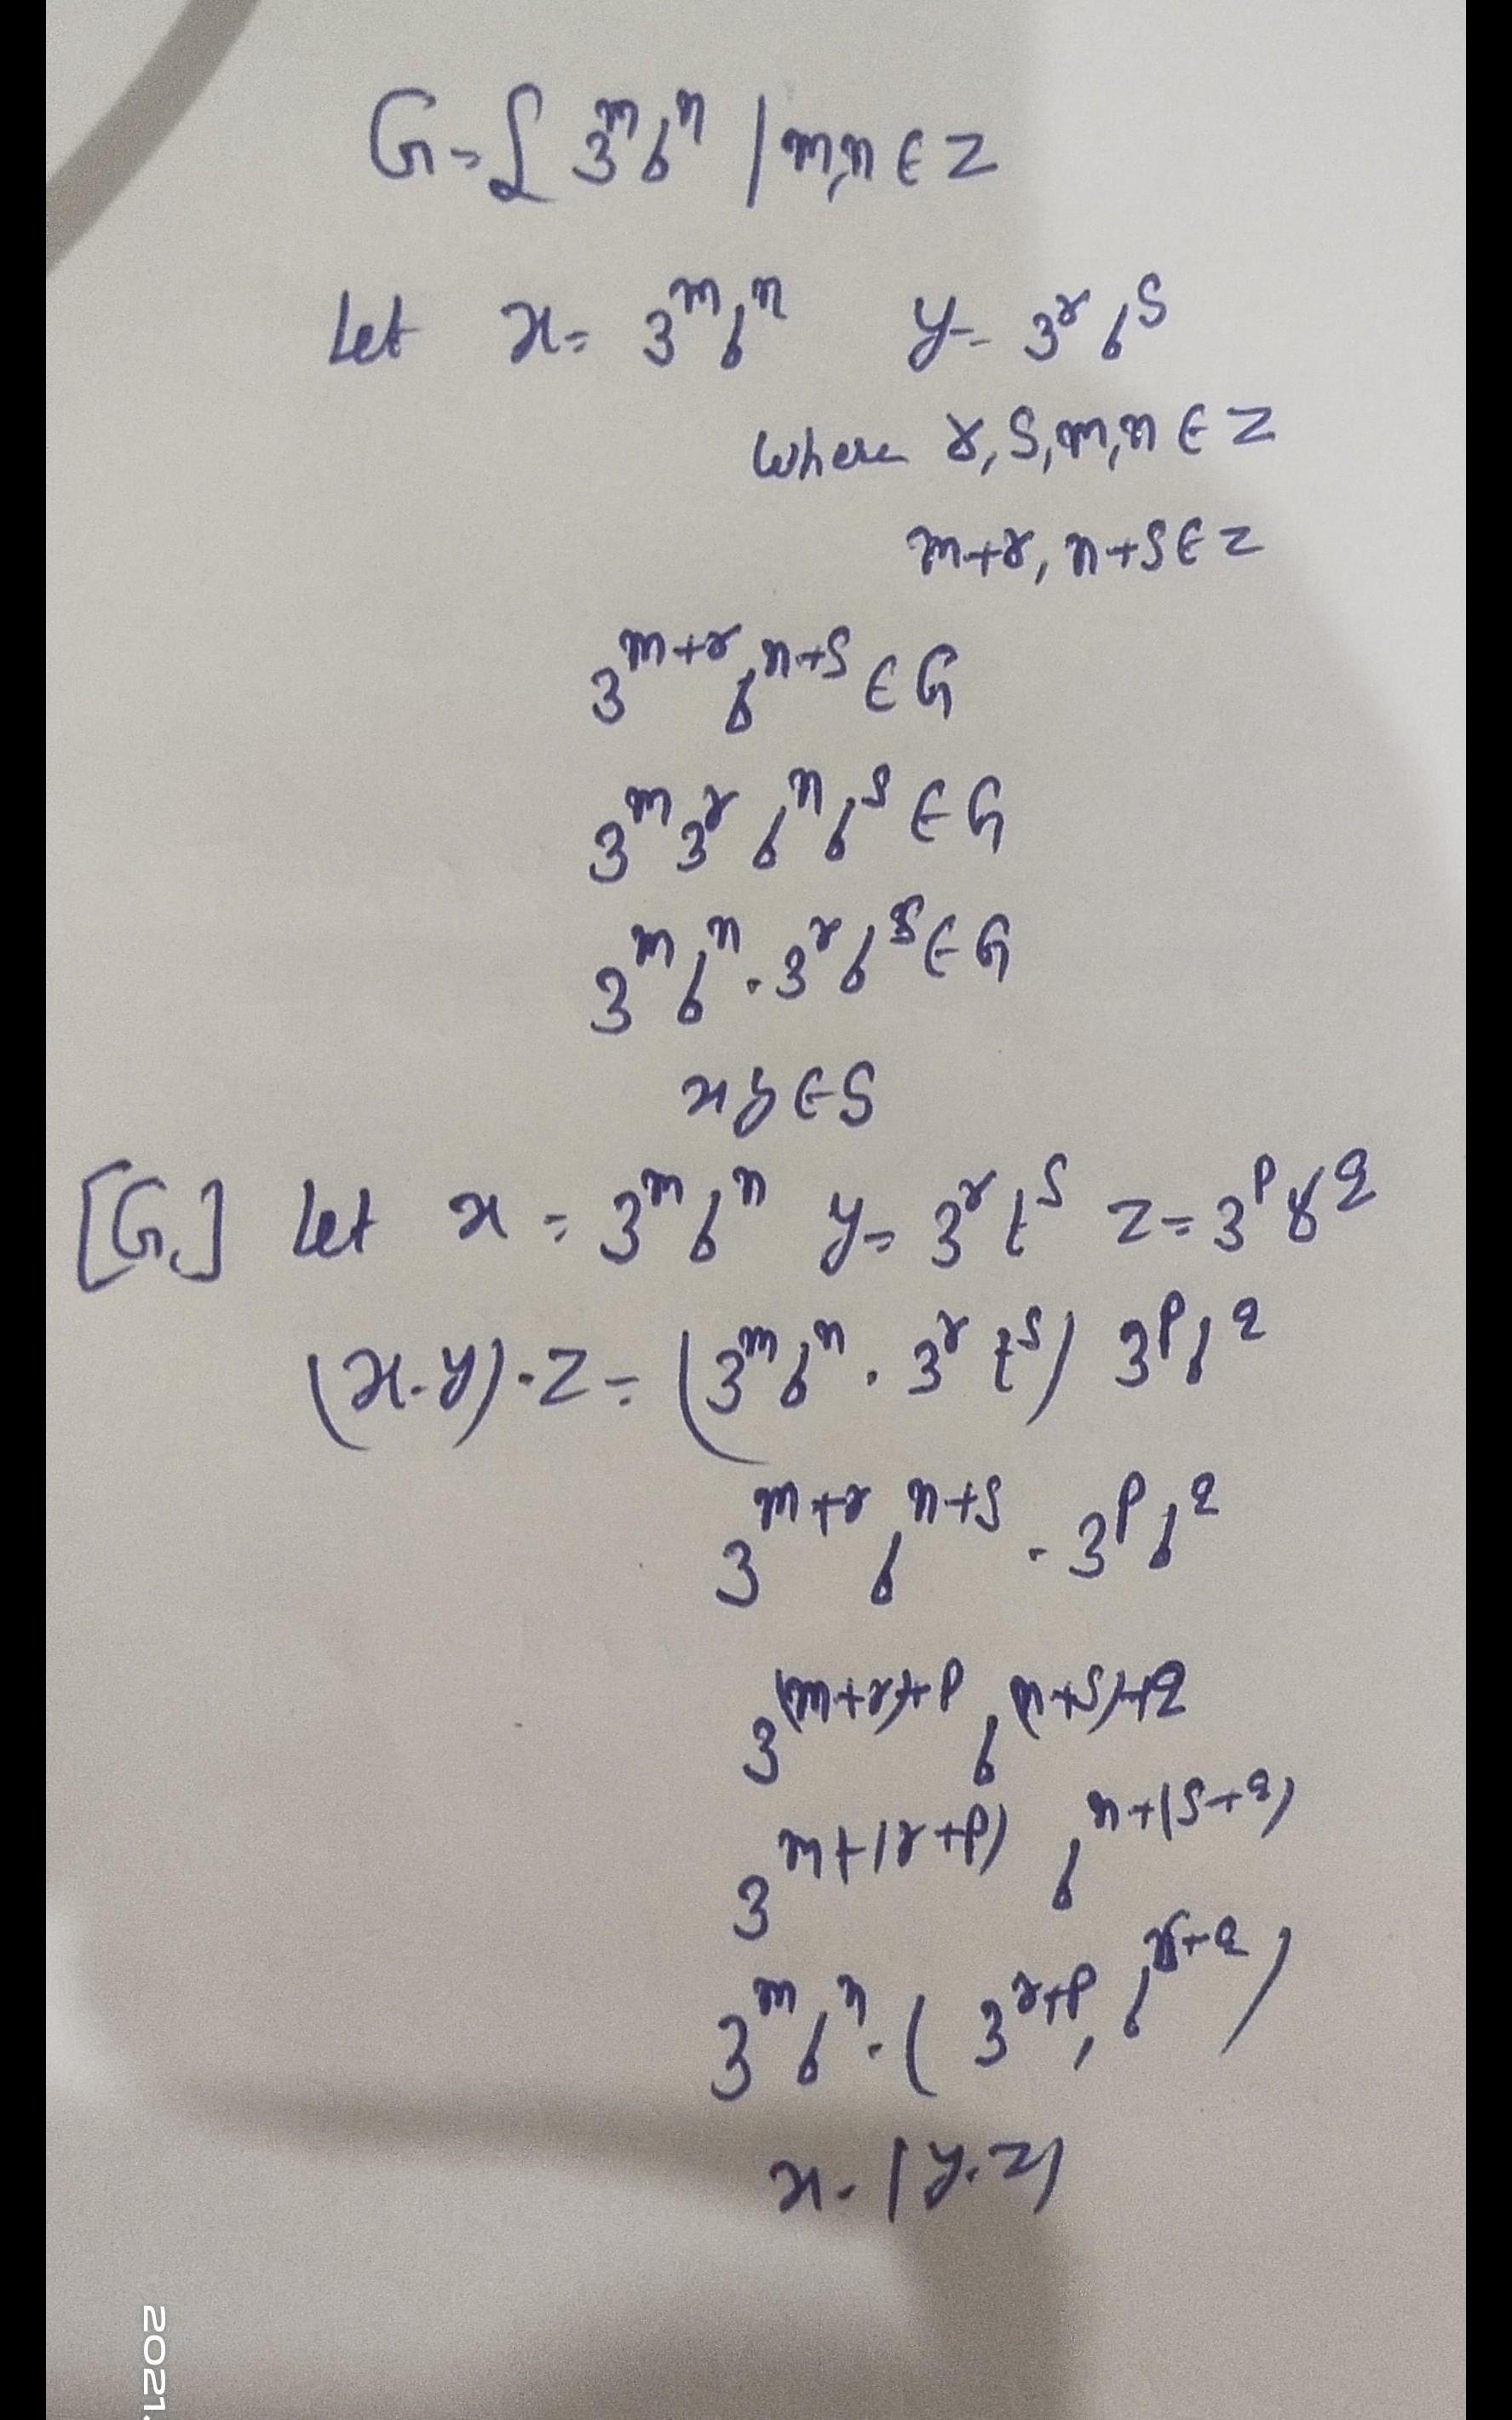 G = { 3^m 6^n | m,n ∈ Z
Let x = 3^m 6^n y = 3^r 6^s
where r, s, m, n ∈ Z
m+r, n+s ∈ Z
3^{m+r} 6^{n+s} ∈ G
3^m 3^r 6^n 6^s ∈ G
3^m 6^n . 3^r 6^s ∈ G
xy ∈ S
[G,] Let x = 3^m 6^n y = 3^r t^s z = 3^p 8^q
(x.y).z = (3^m 6^n . 3^r t^s) 3^p 6^q
3^{m+r} 6^{n+s} . 3^p 6^q
3^{(m+r)+p} 6^{(n+s)+q}
3^{m+(r+p)} 6^{n+(s+q)}
3^m 6^n . ( 3^{r+p}, 6^{s+q} )
x . (y.z)
2021.